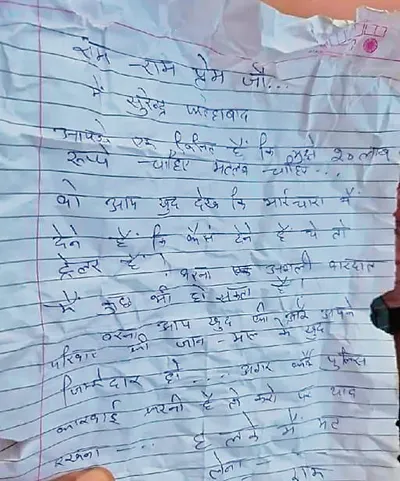 राम राम प्रेम जी...
मैं सुरेन्द्र फतेहाबाद
आपसे एक रिक्वेस्ट है कि मुझे २० लाख
रूपये चाहिए मतलब चाहिए...
वो आप खुद देख कि भाईचारा में
देने है कि कैसे देने है ये तो
ट्रेलर है। वरना अगली वारदात
में कुछ भी हो सकता है।
वरना आप खुद की और अपने
परिवार की जान-माल के खुद
जिम्मेदार हो... अगर कोई पुलिस
कारवाई करनी है तो करो पर याद
रखना -... हलके में मत
लेना -
राम